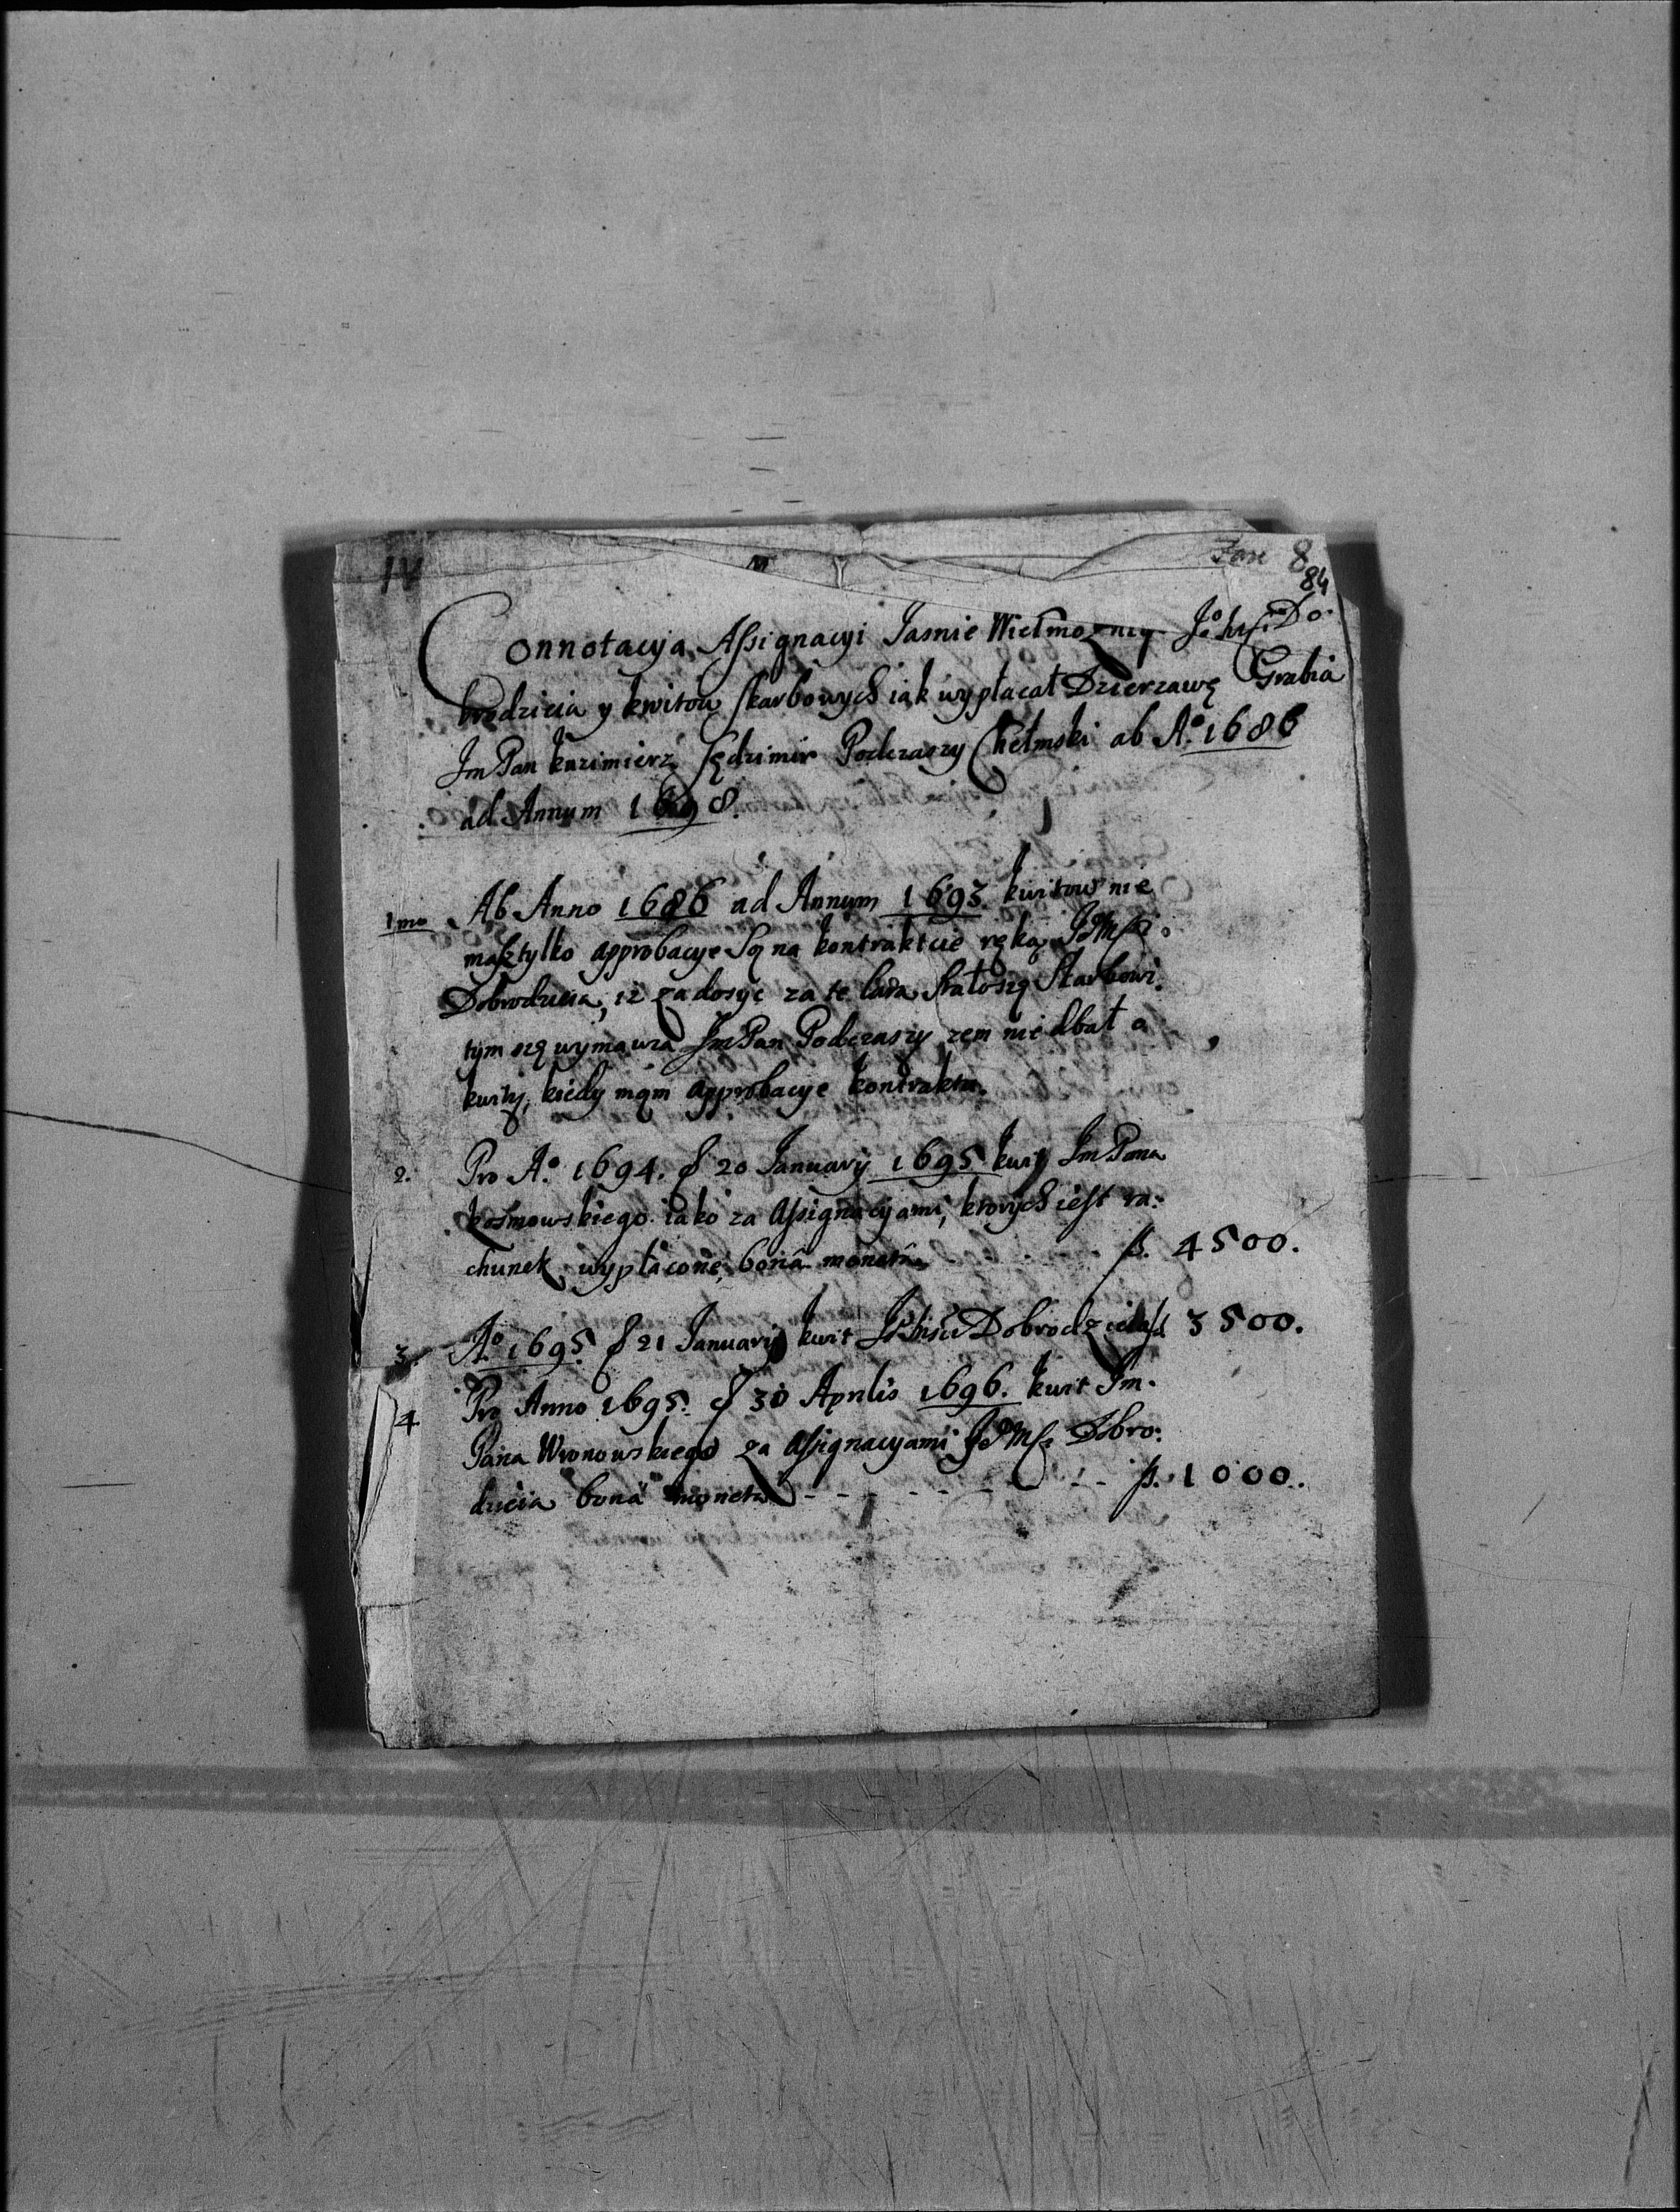 IV
Fasc 8
84
Connotacyja Assignacyi Jasnie Wielmoznego Jo Do
brodzieia y kwitow skarbowych iak wypłacał Dzierzawę Grabia
Jm Pan kazimierz Sędzimir Podczaszy Chełmski ab A° 1686
ad Annum 1698.
1mo Ab Anno 1686 ad Annum 1693. kwitow nie
masz tylko approbacye Są na kontraktcie ręką
Dobrodzieia, iz zadosyc za te lata stało się Skarbowi.
tym się wymawia Jm Pan Podczaszy zem nie dbał o
kwity, kiedy mam approbacye kontraktu.
2. Pro A° 1694. d 20 January 1695 kwit Jm Pana
kosmowskiego iako za assignacyjami, ktorych iest ra:
chunek wypłacone, bonâ monetâ f. 4500.
3. A° 1695. d 21 January kwit Dobrodzieia f 3500.
4 Pro Anno 1695. d 30 Aprilis 1696. kwit Jm.
Pana Wronowskiego za assignacyami Dobro:
dzieia bonâ monetâ - - - - - - - - f. 1000.